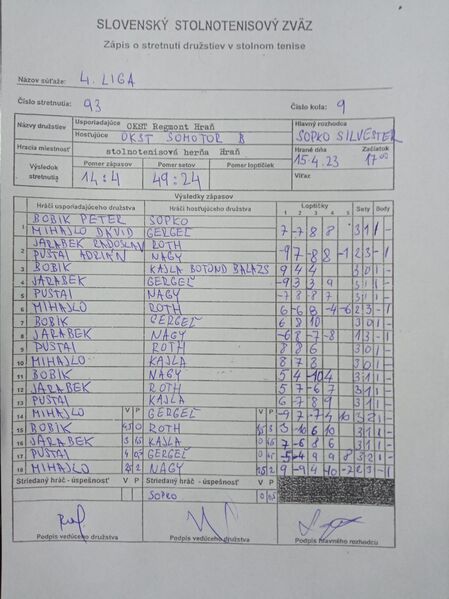 SLOVENSKÝ STOLNOTENISOVÝ ZVÄZ
Zápis o stretnutí družstiev v stolnom tenise
Názov súťaže: 4. LIGA
Číslo stretnutia: 93 Číslo kola: 9
Názvy družstiev Usporiadajúce OKST Regmont Hraň Hlavný rozhodca
Hosťujúce OKST SOMOTOR B SOPKO SILVESTER
Hracia miestnosť stolnotenisová herňa Hraň Hrané dňa Začiatok
15.4.23 17 00
Výsledok stretnutia Pomer zápasov Pomer setov Pomer loptičiek Víťaz
14:4 49:24
Výsledky zápasov
Hráči usporiadajúceho družstva Hráči hosťujúceho družstva Loptičky Sety Body
1 2 3 4 5
1 BOBIK PETER SOPKO
MIHAJLO DAVID GERGEĽ 7 -7 8 8 3 1 1 -
2 JARABEK RADOSLAV ROTH
PUSTAI ADRIÁN NAGY -9 7 -8 8 -1 2 3 - 1
3 BOBIK KAJLA BOTOND BALAZS 9 4 4 3 0 1 -
4 JARABEK GERGEĽ -9 3 3 9 3 1 1 -
5 PUSTAI NAGY -7 8 8 7 3 1 1 -
6 MIHAJLO ROTH 6 -6 8 -4 -6 2 3 - 1
7 BOBIK GERGEĽ 6 8 10 3 0 1 -
8 JARABEK NAGY -6 8 -7 -8 1 3 - 1
9 PUSTAI ROTH 8 8 6 3 0 1 -
10 MIHAJLO KAJLA 8 7 8 3 0 1 -
11 BOBIK NAGY 5 4 -10 4 3 1 1 -
12 JARABEK ROTH 5 7 -6 7 3 1 1 -
13 PUSTAI KAJLA 6 -7 8 9 3 1 1 -
14 MIHAJLO V P GERGEĽ V P -9 7 -7 4 10 3 2 1 -
15 BOBIK ROTH 3 -10 6 10 3 1 1 -
16 JARABEK KAJLA 7 -6 8 6 3 1 1 -
17 PUSTAI GERGEĽ -5 -4 9 9 8 3 2 1 -
18 MIHAJLO NAGY 9 -9 4 -10 -7 2 3 - 1
Striedaný hráč - úspešnosť V P Striedaný hráč - úspešnosť V P
SOPKO 0 0,5
Podpis vedúceho družstva Podpis vedúceho družstva Podpis hlavného rozhodcu